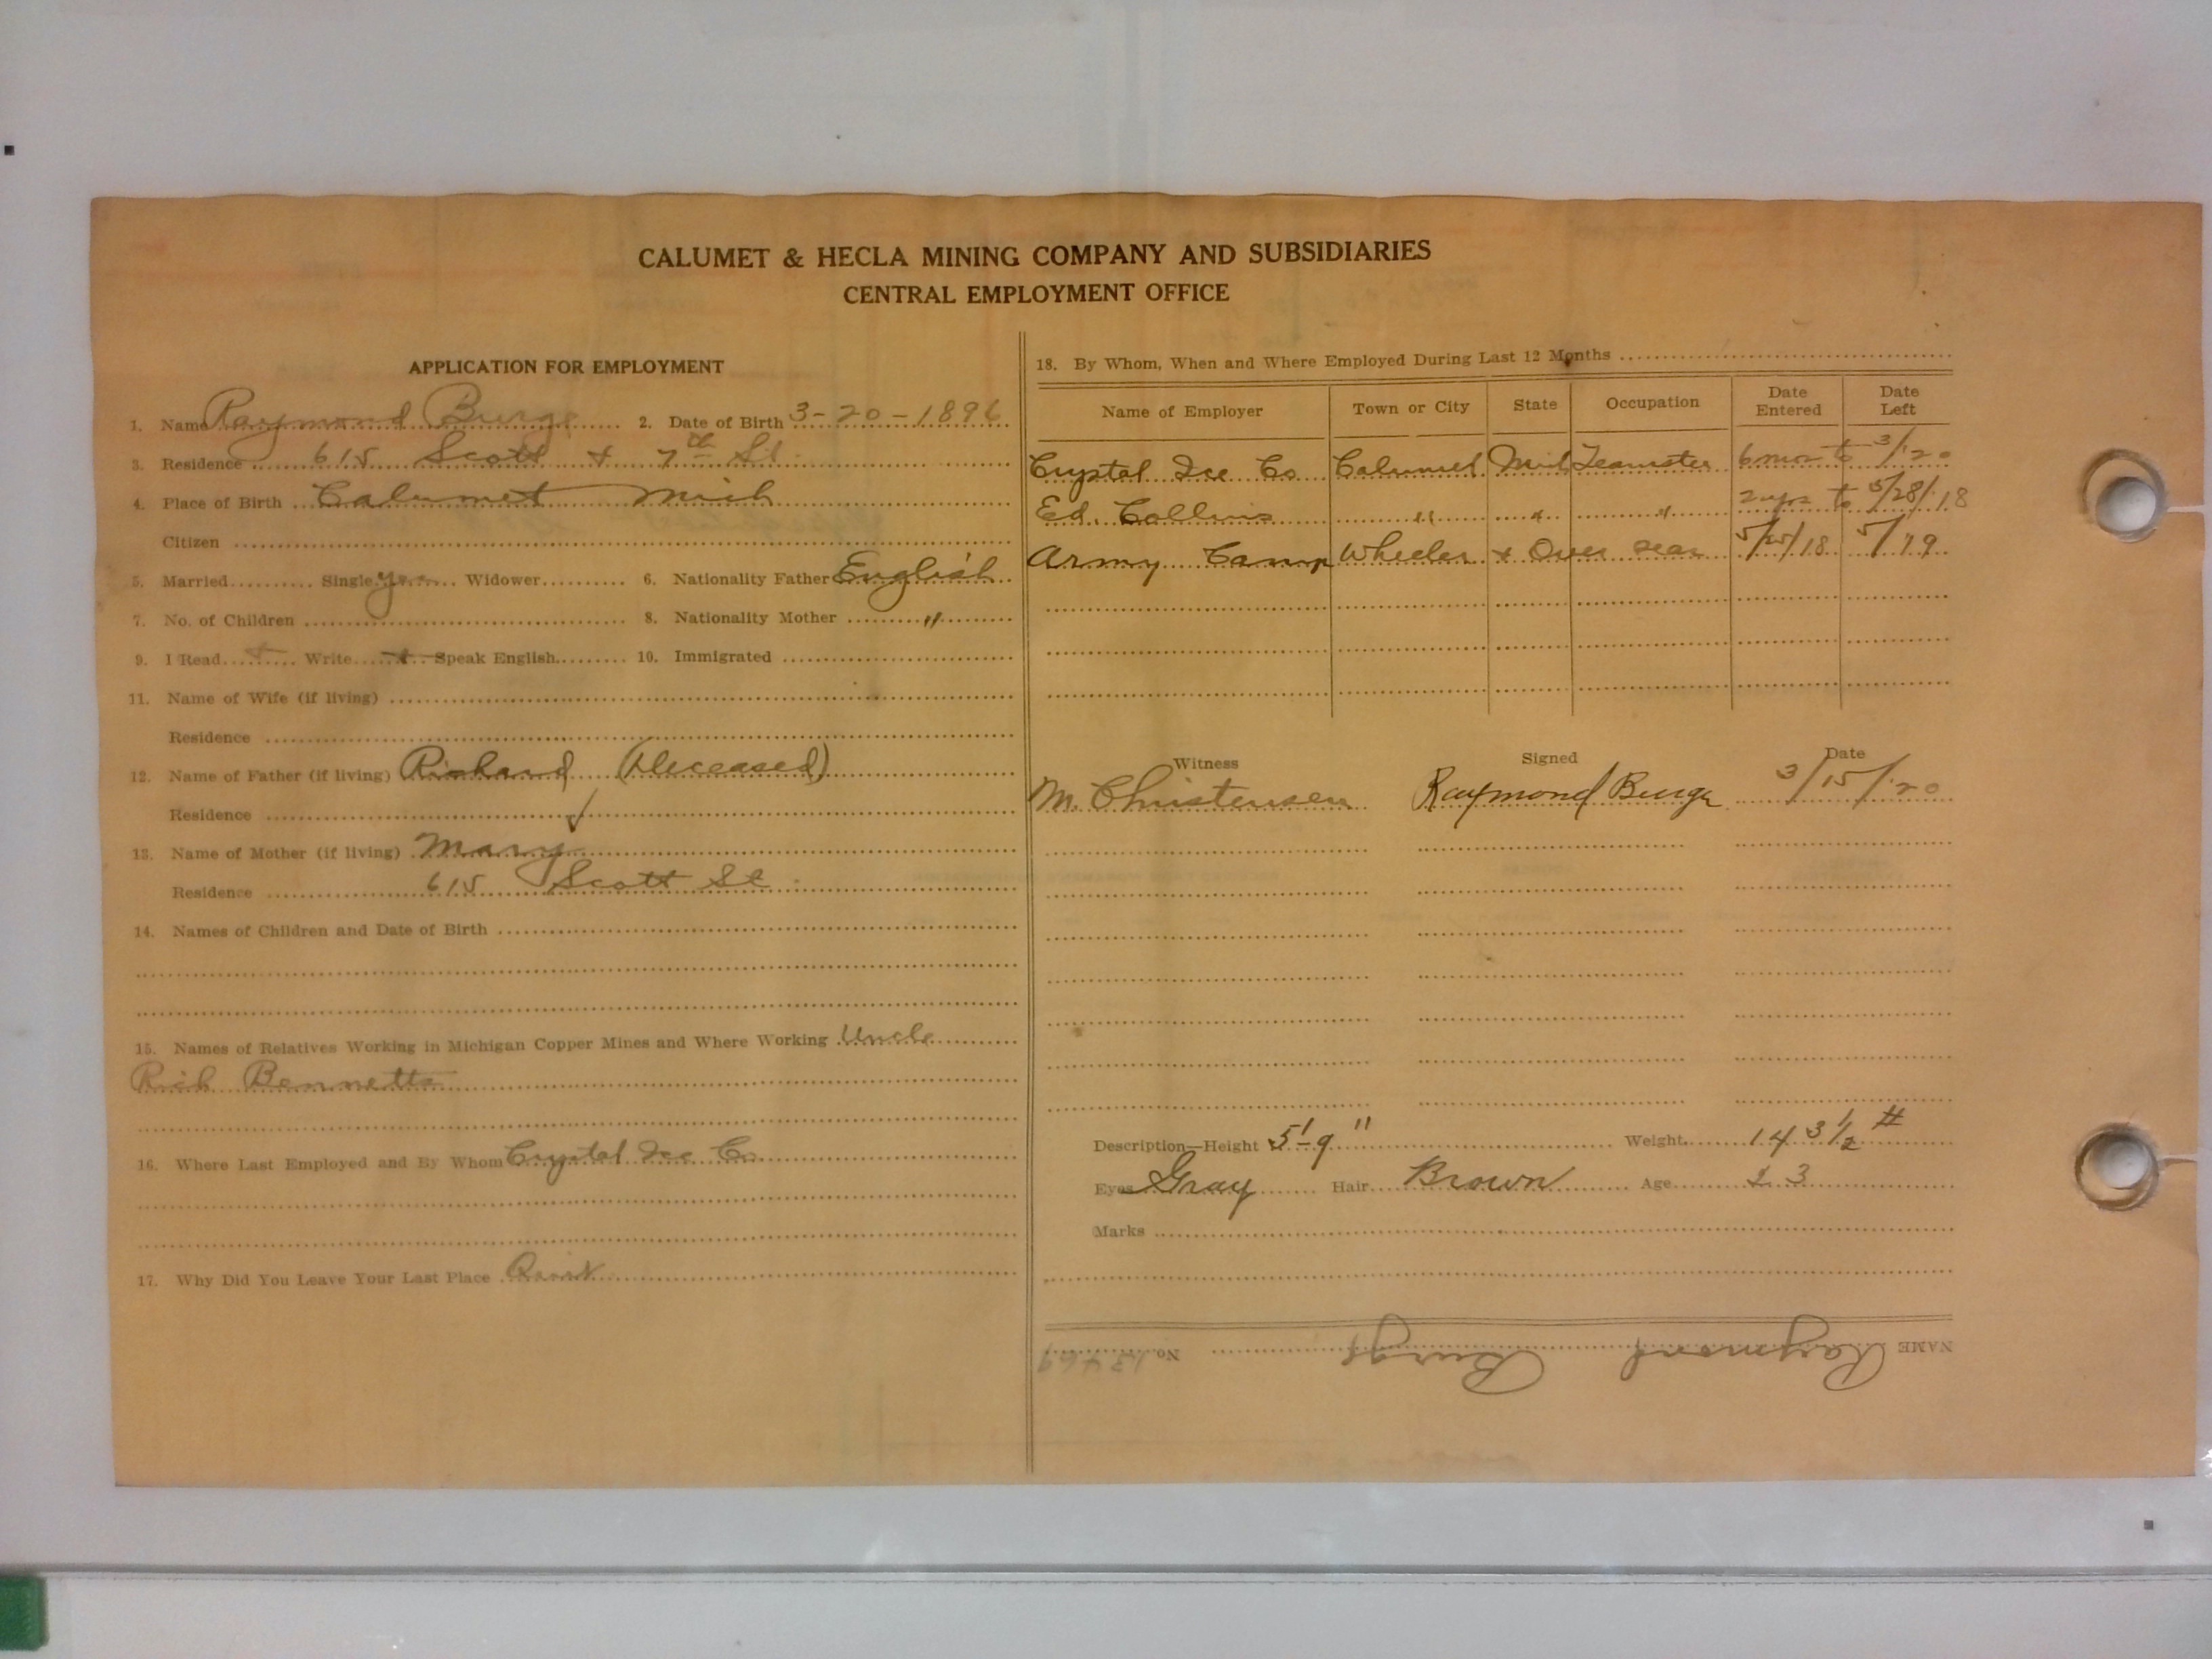 CALUMET & HECLA MINING COMPANY AND SUBSIDIARIES
CENTRAL EMPLOYMENT OFFICE
APPLICATION FOR EMPLOYMENT
1. Name Raymond Burge 2. Date of Birth 3-20-1896
3. Residence 615 Scott & 7th St
4. Place of Birth Calumet Mich
Citizen
5. Married Single yes Widower 6. Nationality Father English
7. No. of Children 8. Nationality Mother "
9. I Read + Write + Speak English 10. Immigrated
11. Name of Wife (if living)
Residence
12. Name of Father (if living) Richard (Deceased)
Residence
13. Name of Mother (if living) Mary
Residence 615 Scott St
14. Names of Children and Date of Birth
15. Names of Relatives Working in Michigan Copper Mines and Where Working Uncle
Rich Bennetts
16. Where Last Employed and By Whom Crystal Ice Co
17. Why Did You Leave Your Last Place
18. By Whom, When and Where Employed During Last 12 Months
Name of Employer Town or City State Occupation Date Entered Date Left
Crystal Ice Co Calumet Mich Teamster 6 mos to 3/'20
Ed. Collins " " " 2 yrs to 5/28/18
Army Camp Wheeler & Over seas 5/25/18 5/19
Witness Signed Date
M. Christensen Raymond Burge 3/15/'20
Description—Height 5'-9" Weight 143 1/2 #
Eyes Gray Hair Brown Age 23
Marks
NAME Raymond Burge No. 13469